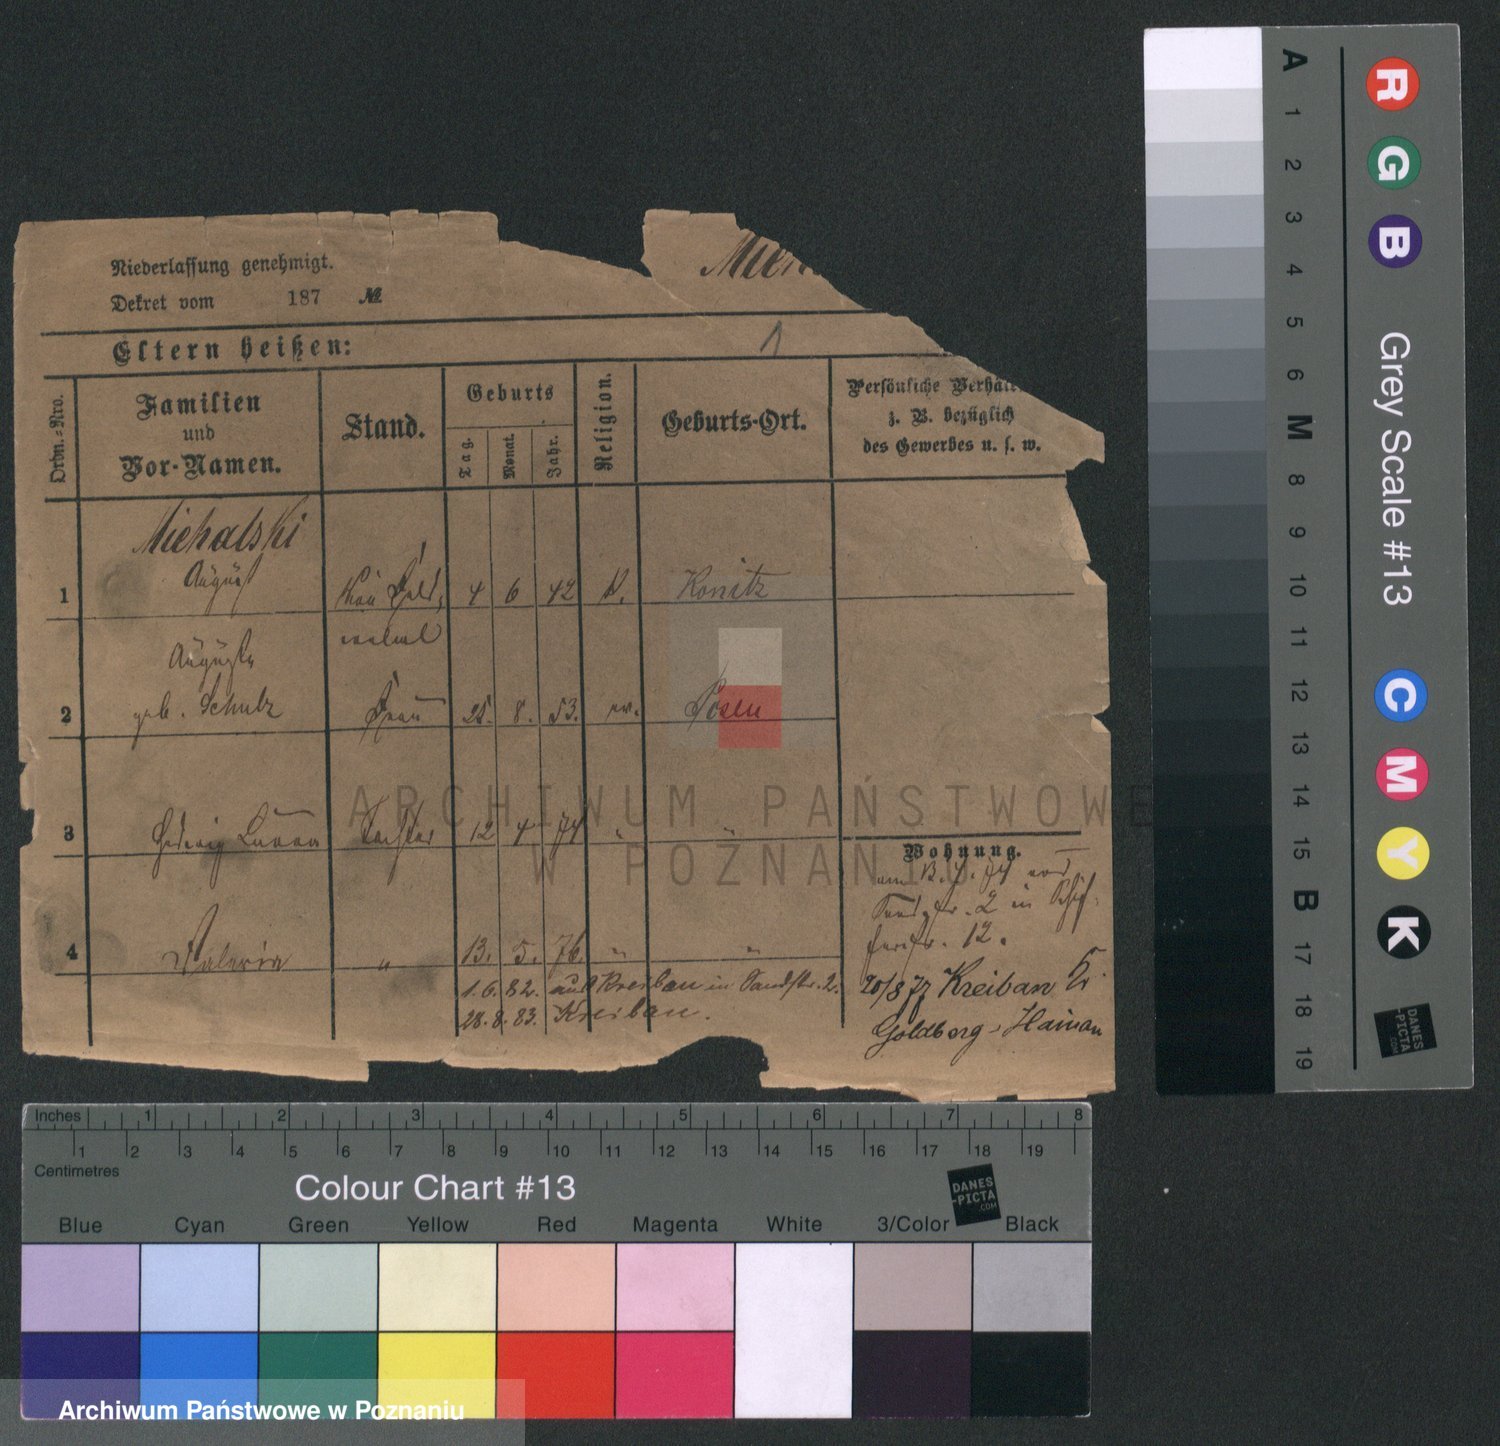 Niederlassung genehmigt.
Dekret vom 187 №
1
Eltern heißen:
Ordn.-Nro.
Familien
und
Vor-Namen.
Stand.
Geburts
Tag.
Monat.
Jahr.
Religion.
Geburts-Ort.
Persönliche
z. B. bezüglich
des Gewerbes u. s. w.
Michalski
August
1 4 6 42 K. Konitz
Auguste
geb. Schulz
2 Frau 25. 8. 53. ev. Posen
3 Hedwig Tochter 12 4 74 " "
4 Valeria " 13. 5. 76. " "
Wohnung.
in
12.
20/8 77 Kreibau Kr
Goldberg-Hainau
1.6.82. aus Kreibau in Sandstr. 2.
28.8.83. Kreibau.
ARCHIWUM PAŃSTWOWE
W POZNANIU
Inches 1 2 3 4 5 6 7 8
1 2 3 4 5 6 7 8 9 10 11 12 13 14 15 16 17 18 19
Centimetres
Colour Chart #13
DANES
-PICTA
.COM
Blue Cyan Green Yellow Red Magenta White 3/Color Black
Archiwum Państwowe w Poznaniu
A 1 2 3 4 5 6 M 8 9 10 11 12 13 14 15 B 17 18 19
R G B
Grey Scale #13
C M Y K
DANES
-PICTA
.COM